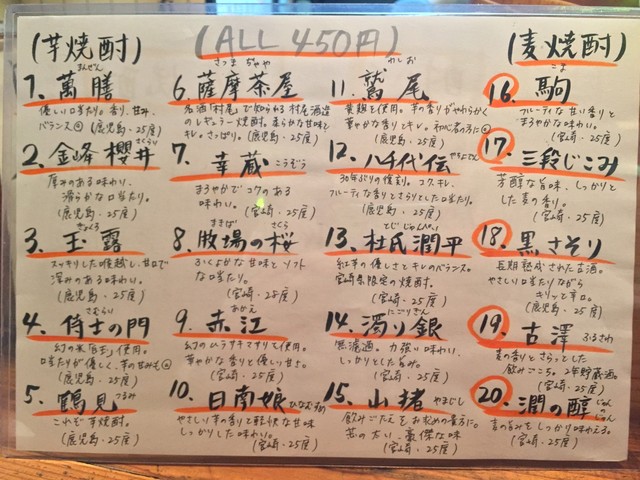 (芋焼酎)
(ALL 450円)
(麦焼酎)
まんぜん
1. 萬膳
優しい口当たり。香り、甘み、
バランス◎ (鹿児島・25度)
さくらい
2. 金峰櫻井
厚みのある味わい、
滑らかな口当たり。
(鹿児島・25度)
ぎょくろ
3. 玉露
スッキリした喉越し、甘口で
深みのある味わい。
(鹿児島・25度)
さむらい
4. 侍士の門
幻の米「白玉」使用。
口当たりが優しく、芋の甘みも◎
(鹿児島・25度)
5. 鶴見 つるみ
これぞ芋焼酎。
(鹿児島・25度)
さつま ちゃや
6. 薩摩茶屋
名酒「村尾」で知られる村尾酒造
のレギュラー焼酎。柔らかな甘味と
キレ。さっぱり。(鹿児島・25度)
7. 幸蔵 こうぞう
まろやかでコクのある
味わい。
(宮崎・25度)
まきば さくら
8. 牧場の桜
ふくよかな甘味とソフト
な口当たり。
(宮崎・25度)
あかえ
9. 赤江
幻のムラサキマサリ使用。
華やかな香りと優しい甘さ。
(宮崎・25度)
10. 日南娘 ひなむすめ
やさしい芋の香りと軽快な甘味
しっかりした味わい。
(宮崎・25度)
わしお
11. 鷲尾
黄麹を使用。芋の香りがやわらかく
華やかな香りとキレ。初心者の方に◎
(鹿児島・25度)
12. 八千代伝 やちよでん
30年ぶりの復刻。コク、キレ、
フルーティな香りとさらりとした口当たり。
(鹿児島・25度)
とじ じゅんぺい
13. 杜氏潤平
紅芋の優しさとキレのバランス。
宮崎県限定の焼酎。
(宮崎・25度)
にごりぎん
14. 濁り銀
無濾過。力強い味わい、
しっかりとした旨み。
(宮崎・25度)
15. 山猪 やまじし
飲みごたえをお求めの貴方に。
(宮崎・25度)
こま
16. 駒
フルーティな甘い香りと
まろやかな味わい。
(宮崎・25度)
17. 三段じこみ
芳醇な旨味、しっかりと
した麦の香り。
(宮崎・25度)
18. 黒さそり
長期熟成された古酒。
やさしい口当たりながら
キリッと辛口。
(宮崎・25度)
19. 古澤 ふるさわ
麦の香りとさらっとした
飲みごこち。2年貯蔵酒。
(宮崎・25度)
20. 潤の醇 じゅんのじゅん
麦の旨みをしっかり味わえる。
(宮崎・25度)